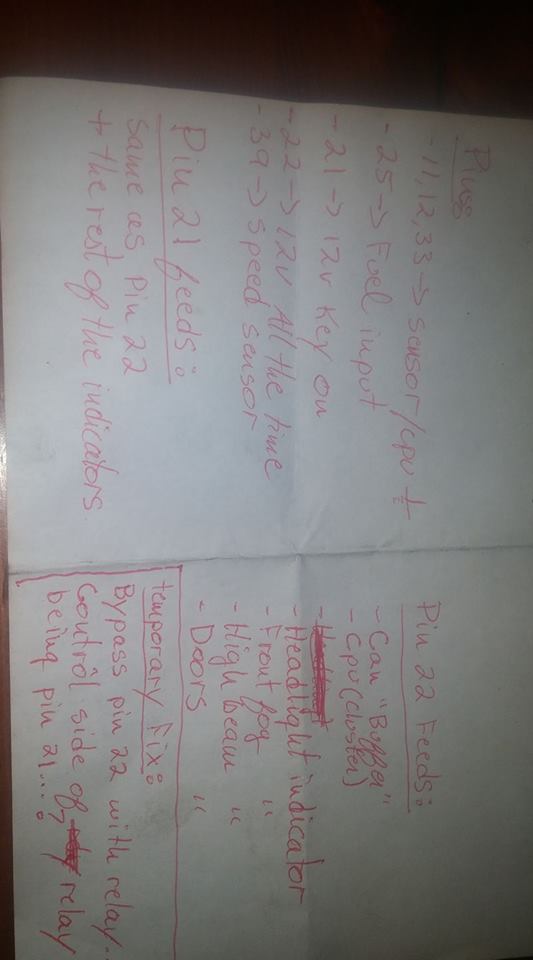 Pins
- 11, 12, 33 -> sensor/cpu ⏚
- 25 -> Fuel input
- 21 -> 12v Key on
- 22 -> 12v All the time
- 39 -> speed sensor
Pin 21 feeds:
same as Pin 22
+ the rest of the indicators.
Pin 22 Feeds:
- Can "Buffer"
- Cpu (cluster)
- Headlight indicator
- Front fog "
- High beam "
- Doors "
temporary Fix:
Bypass pin 22 with relay...
Control side of relay
being pin 21...